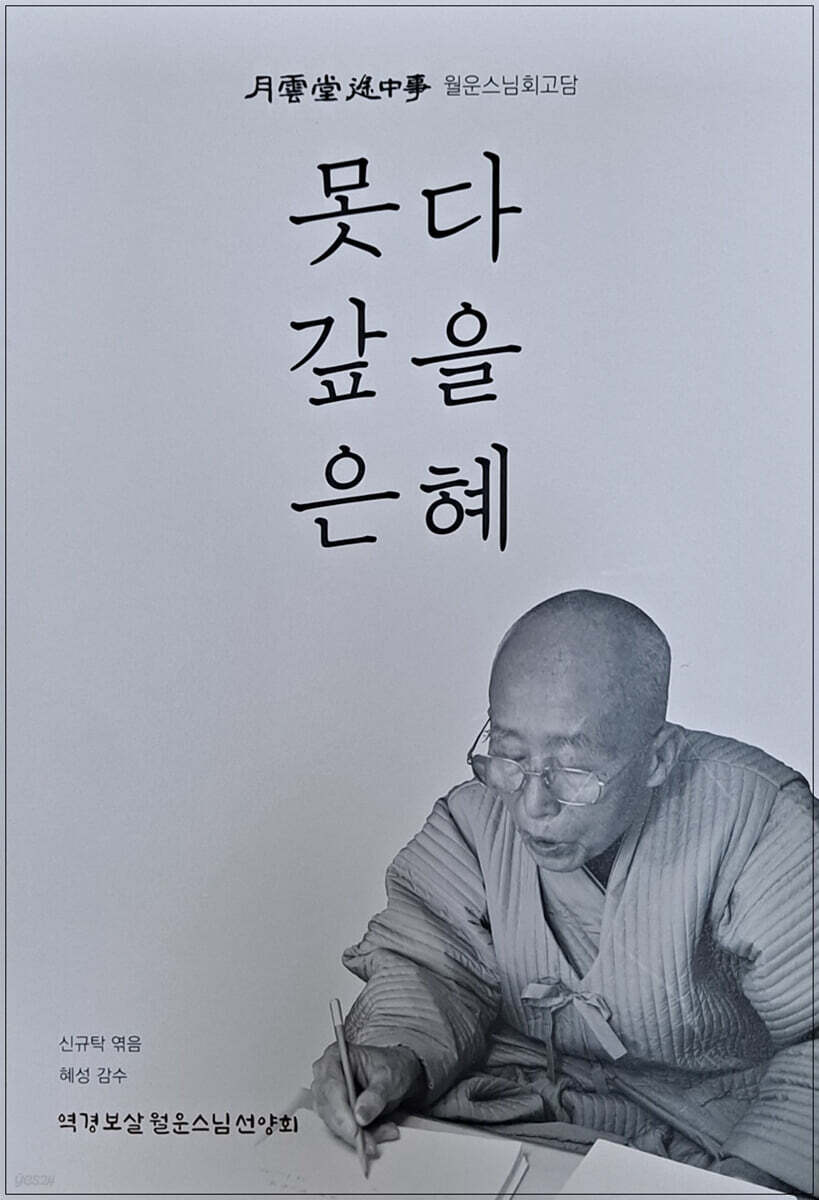 月雲堂 途中事 월운스님회고담
못다
갚을
은혜
신규탁 엮음
혜성 감수
역경보살월운스님선양회
yes24